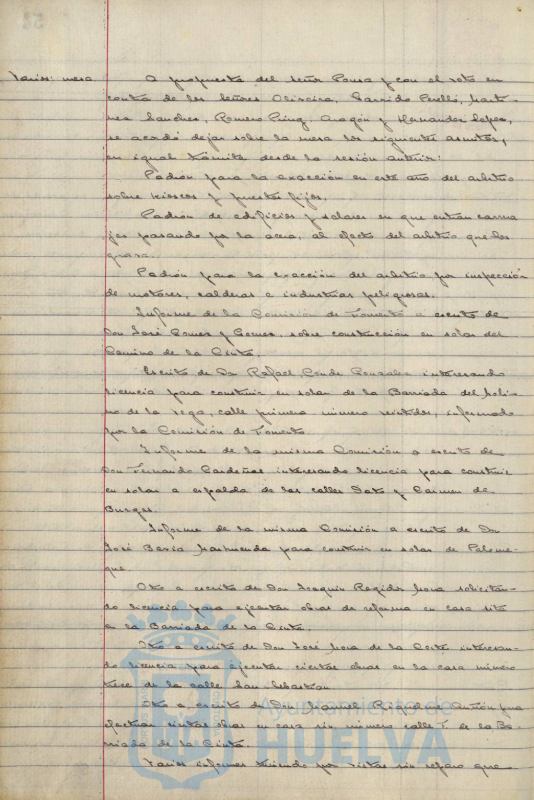 Varios: mesa
A propuesta del señor Ponsa y con el voto en
contra de los Señores Oliveira, Garrido Perelló, Marti-
nez Sanchez, Romero Ping, Aragón y Hernandez Lopez,
se acordó dejar sobre la mesa los siguientes asuntos,
en igual trámite desde la sesión anterior:
Padrón para la exacción en este año del arbitrio
sobre kioscos y puestos fijos.
Padrón de edificios y solares en que entran carrua
jes pasando por la acera, al efecto del arbitrio que los
grava.
Padrón para la exacción del arbitrio por inspección
de motores, calderas e industrias peligrosas.
Informe de la Comisión de Fomento a escrito de
Don José Gomez y Gomez, sobre construcción en solar del
Camino de la Cinta.
Escrito de Dn Rafael Conde Gonzalez interesando
licencia para construir en solar de la Barriada del Moli-
no de la Vega, calle primera número veintidos, informado
por la Comisión de Fomento.
Informe de la misma Comisión a escrito de
Don Fernando Cardeñas interesando licencia para construir
en solar a espalda de las calles Dato y Carmen de
Burgos.
Informe de la misma Comisión a escrito de Dn
José para construir en solar de
que.
Otro a escrito de Don Joaquín Regidor Mora solicitan-
do licencia para ejecutar obras de reforma en casa sita
en la Barriada de la Cinta.
Otro a escrito de Don José Mora de la Corte interesan-
do licencia para ejecutar ciertas obras en la casa número
trece de la calle San Sebastian.
Otro a escrito de Don Manuel para
efectuar ciertas obras en casa sin número calle T de la Ba-
rriada de la Cinta.
Varios informes teniendo por vistas sin reparo que
Ayuntamiento de
HUELVA